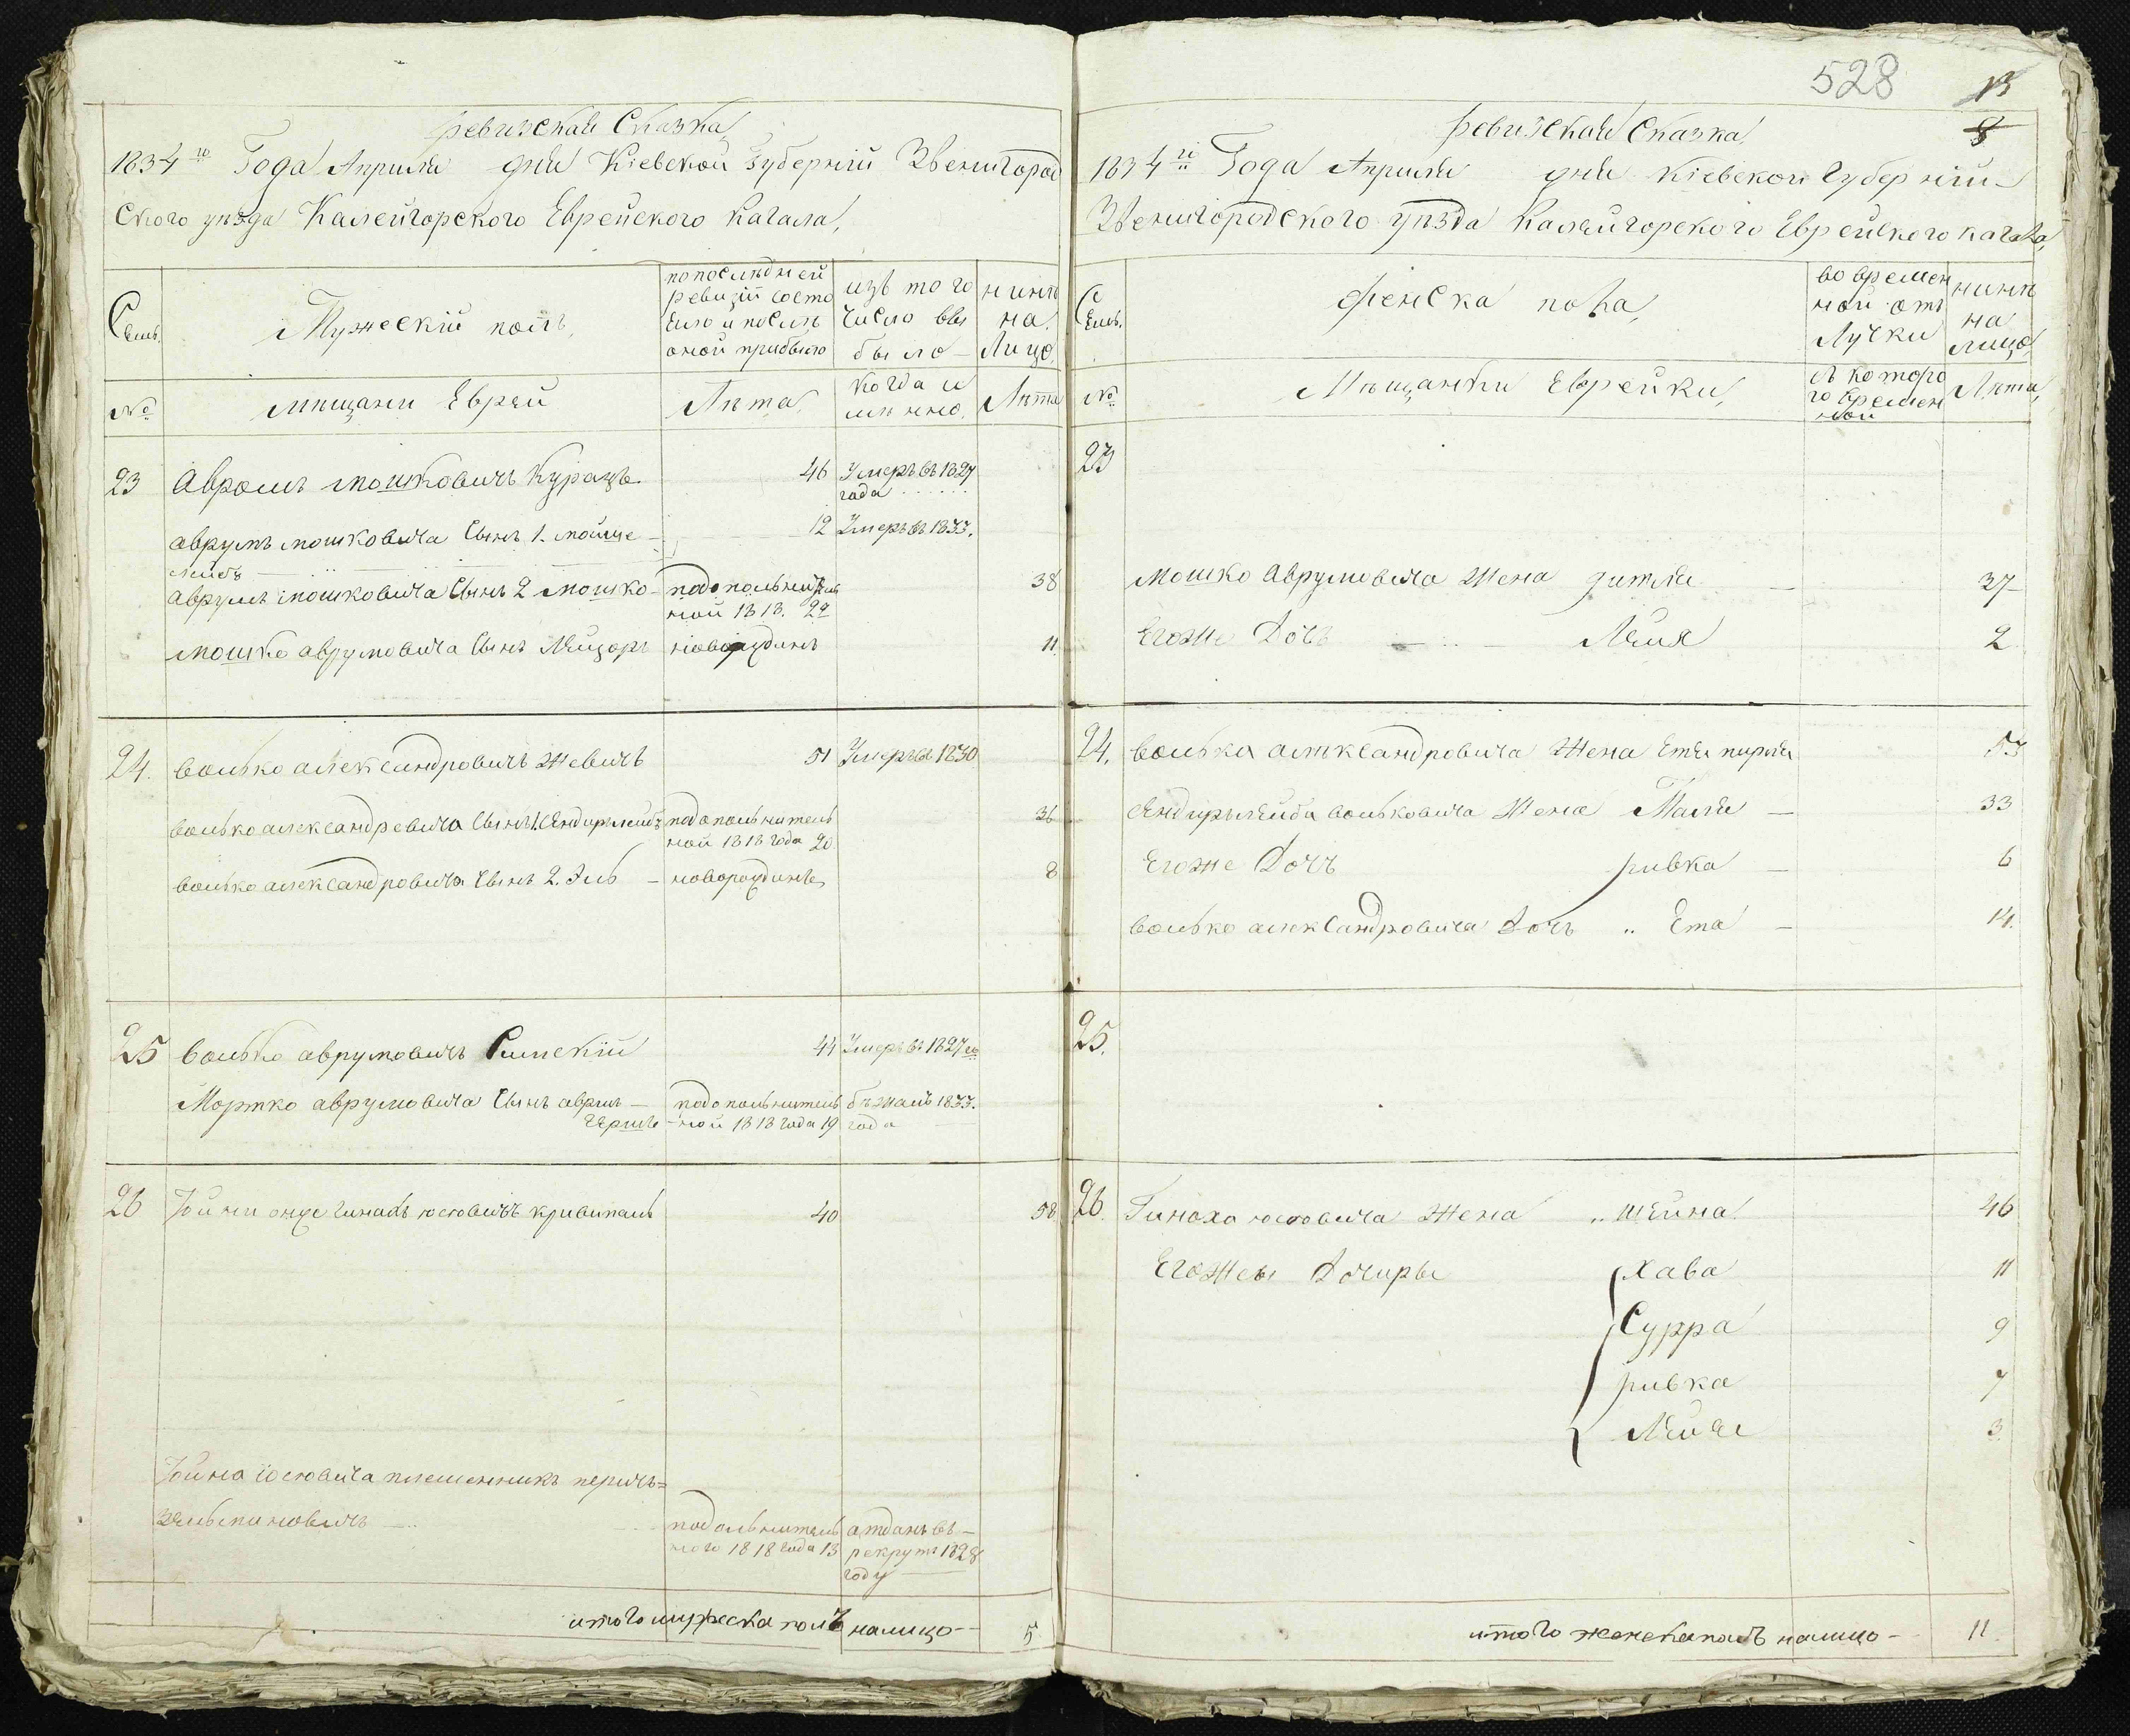 ревизская Сказка
1834го Года Априля дня Кіевской Губерніи Звенигород
Ского уѣзда Калейгорского Еврейского Кагала,
Семь.
Мужескій полъ,
по последней
ревизіи состо
яло и послѣ
оной прибыло
изъ того
число вы
было
нинѣ
на
Лицо,
№
мѣщани Евреи
Лѣта,
когда и
имянно.
Лѣта
23 Авромъ мошковичъ Курацъ. 46 Умеръ въ 1827
года
аврумъ мошковича Сынъ 1. мойше 12 Умеръ въ 1833.
лейбъ
аврумъ мошковича Сынъ 2 мошко подопольнитель 38
ной 1818. 22
мошко аврумовича Сынъ Лейзоръ новорождинъ 11.
24. волько александровичъ жевичъ 51 Умеръ въ 1830
волько александровича Сынъ 1. Сендирълейбъ подопольнитель 36
ной 1818 года 20
волько александровича Сынъ 2. Эль новорождинъ 8
25 волько аврумовичъ Римскій 44 Умеръ въ 1827го
Мортко аврумовича Сынъ аврум подопольнитель бежалъ 1833.
Гершъ ной 1818 года 19 года
26 Гинахъ юсовичъ 40 58
Юсовича племенникъ
подопольнитель атданъ въ
ного 1818 года 13 рекруты 1828
году
итого мужеска полъ налицо 5
528
13
8
ревизская Сказка
1834го Года Априля дня Кіевской Губерніи
Звенигородского уѣзда Калейгорского Еврейского кагала,
Семь.
Женска пола,
во времен
ной отъ
Лучки
нинѣ
на
лицо,
№
Мѣщанки Еврейки,
съ которо
го времен
ной
Лѣта,
23
мошко аврумовича жена дитля 37
Егоже Дочъ Лея 2
24. волька александровича жена Етя пирля 53
Сендирълейба вольковича жена Маля 33
Егоже Дочъ ривка 6
волько александровича Дочъ „ Ета 14.
25.
26. Гиноха юсовича жена „ шейна 46
Егожеы Дочиры хава 11
Сурра 9
ривка 7
Лейе 3
итого женска полъ налицо 11.